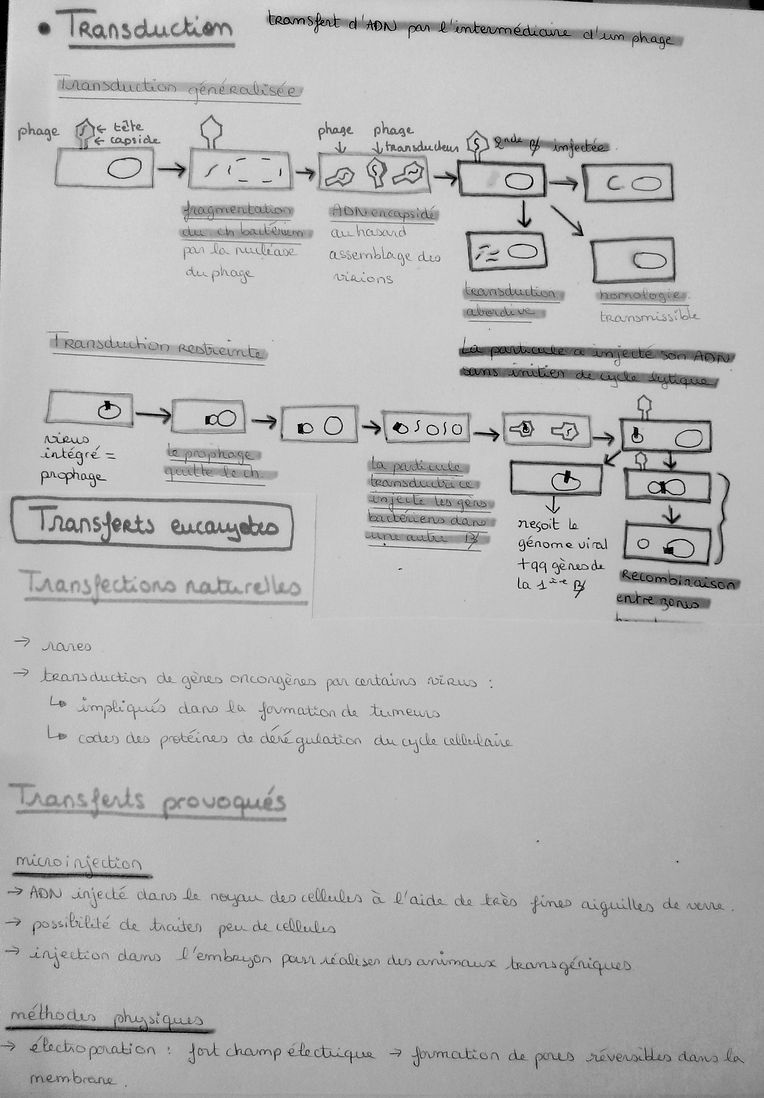 • Transduction transfert d'ADN par l'intermédiaire d'un phage
Transduction généralisée
phage
← tête
← capside
phage
phage
transducteur
2nde B/ injectée
fragmentation
du ch bactérien
par la nucléase
du phage
ADN encapsidé
au hasard
assemblage des
virions
transduction
abordive
homologie
transmissible
Transduction restreinte
La particule a injecté son ADN
sans initier de cycle lytique
virus
intégré =
prophage
le prophage
quitte le ch.
la particule
transductrice
injecte les gèns
bactériens dans
une autre B/
reçoit le
génome viral
+ qq gènes de
la 1ière B/
Recombinaison
entre zones
Transferts eucaryotes
Transfections naturelles
→ rares
→ transduction de gènes oncongènes par certains virus :
↳ impliqués dans la formation de tumeurs
↳ codes des protéines de dérégulation du cycle cellulaire
Transferts provoqués
microinjection
→ ADN injecté dans le noyau des cellules à l'aide de très fines aiguilles de verre.
→ possibilité de traiter peu de cellules
→ injection dans l'embryon pour réaliser des animaux transgéniques
méthodes physiques
→ électroporation : fort champ électrique → formation de pores réversibles dans la
membrane.